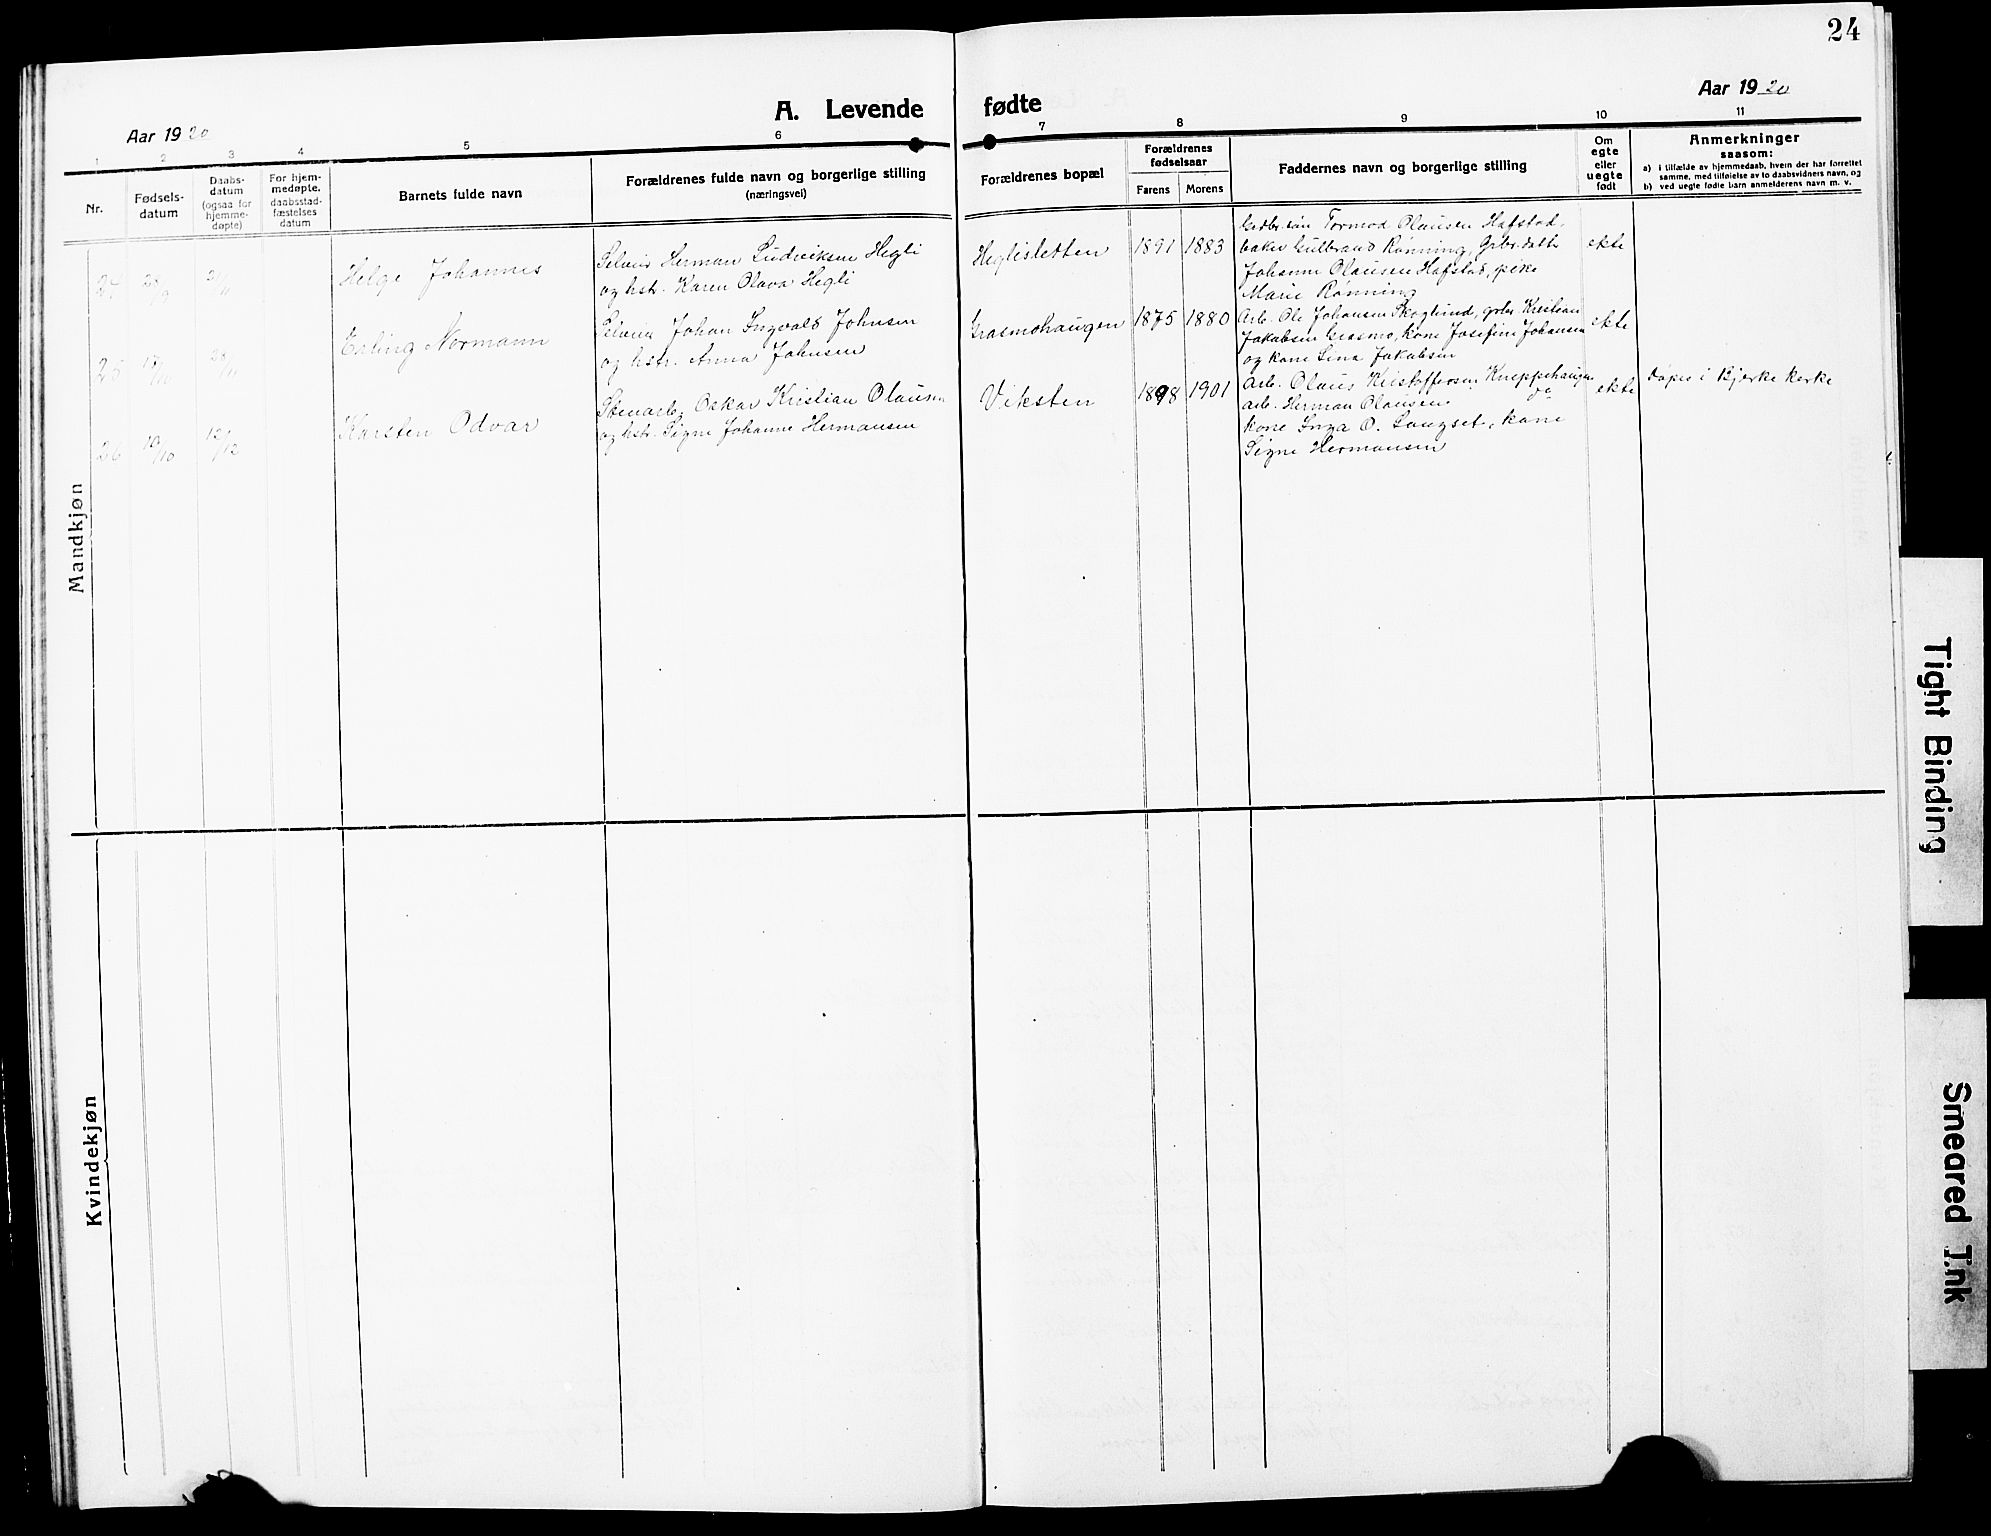 24
A. Levende fødte
Aar 1920
Aar 1920
1 2 3 4 5 6 7 8 9 10 11
Nr.
Fødsels-
datum
Daabs-
datum
(ogsaa for
hjemme-
døpte)
For hjem-
medøpte.
daabsstad-
fæstelses
datum
Barnets fulde navn
Forældrenes fulde navn og borgerlige stilling
(næringsvei)
Forældrenes bopæl
Forældrenes
fødselsaar
Farens Morens
Faddernes navn og borgerlige stilling
Om
egte
eller
uegte
født
Anmerkninger
saasom:
a) i tilfælde av hjemmedaab, hvem der har forrettet
samme, med tilføielse av to daabsvidners navn, og
b) ved uegte fødte barn anmelderens navn m. v.
Mandkjøn
28/9 21/11
Helge Johannes
Herman Ludviksen Hegli
og hstr. Karen Olava Hegli
Heglisletten
1891 1883
Tormod Olausen Hafstad,
baker Gulbrand Rønning, Grbr.datter
Johanne Olausen Hafstad, pike
Marie Rønning
ekte
25 17/10 28/11
Erling Normann
Johan Ingvald Johnsen
og hstr. Anna Johnsen
Grasmohaugen
1875 1880
Arb. Ole Johansen Skoglund, grbr Kristian
Jakobsen Grasmo, kone Josefine Johansen
og kone Lina Jakobsen
ekte
26 10/10 12/12
Karsten Odvar
Stenarb. Oskar Kristian Olausen
og hstr. Signe Johanne Hermansen
Viksten
1898 1901
Arb. Olaus Kristoffersen Kneppehaugen
Arb. Herman Olausen do
kone Inga O. Langset, kone
Signe Hermansen
ekte
Døpt i Bjerke kerke
Kvindekjøn
Tight Binding
Smeared Ink